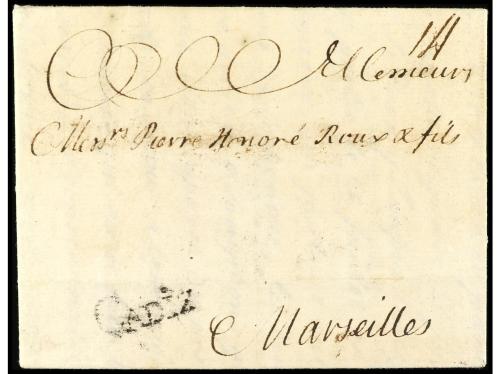 14
Messieurs
Mess.rs Pierre Honoré Roux & fils
CADIZ
Marseilles